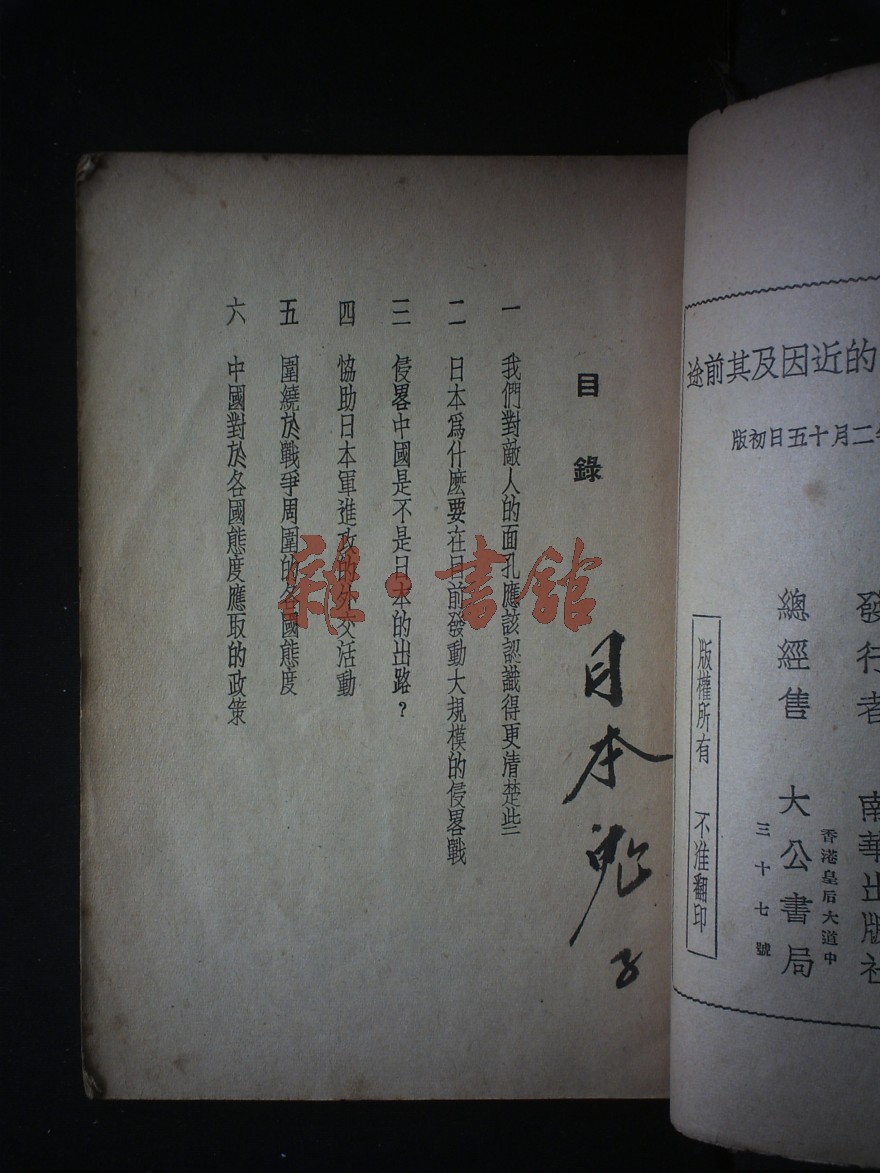 的近因及其前途
二月十五日初版
發行者 南華出版社
總經售 大公書局
香港皇后大道中
三十七號
版權所有 不准翻印
目錄
一 我們對敵人的面孔應該認識得更清楚些
二 日本爲什麼要在目前發動大規模的侵畧戰
三 侵畧中國是不是日本的出路？
四 協助日本軍進攻的外交活動
五 圍繞於戰爭周圍的各國態度
六 中國對於各國態度應取的政策
日本鬼子
雜·書館